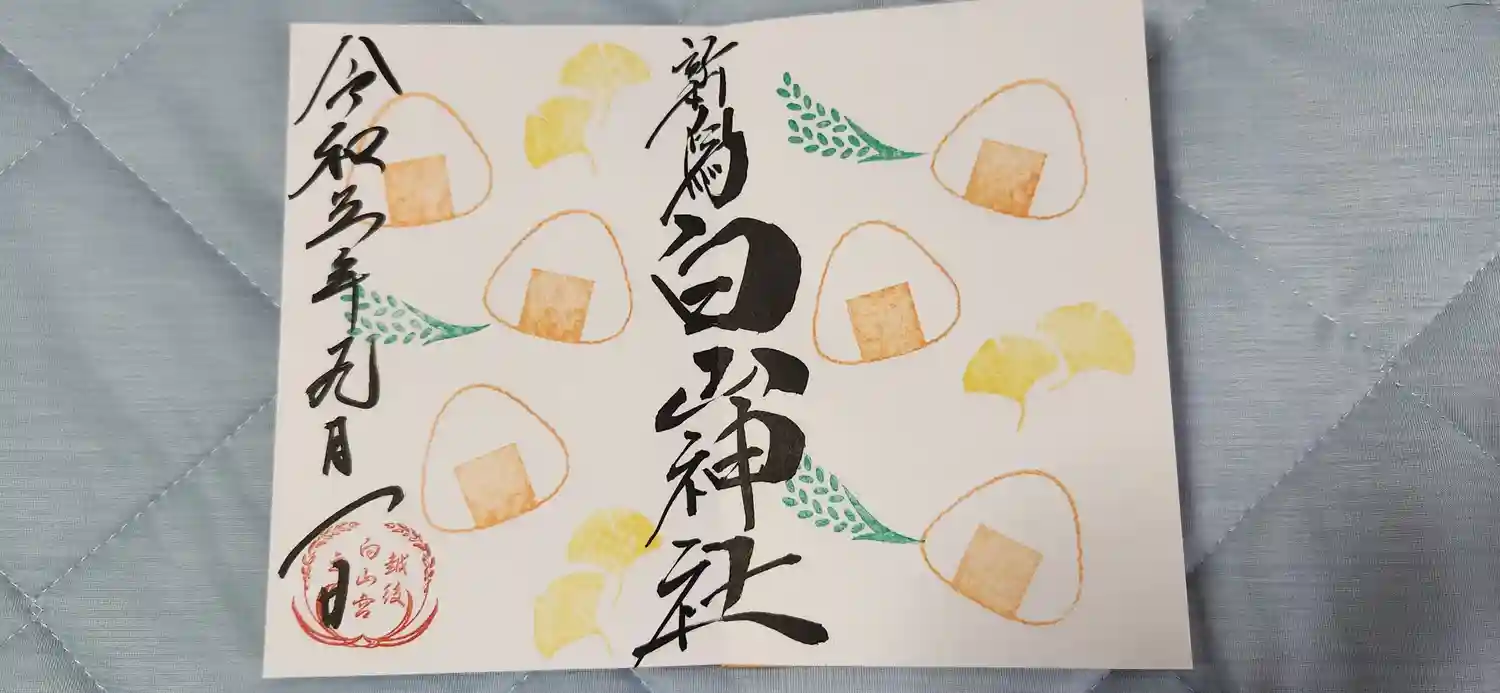 新潟白山神社
令和五年九月日
越後
白山宮